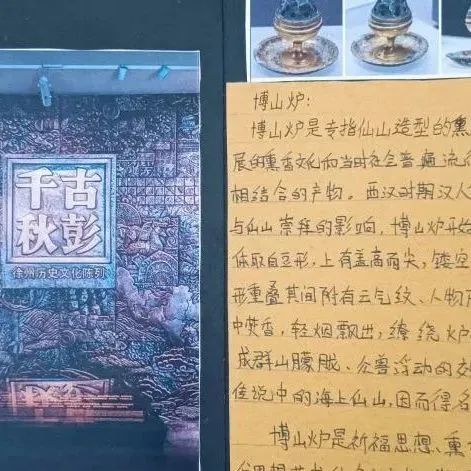 古彭
千秋
徐州历史文化陈列
博山炉:
博山炉是专指仙山造型的熏
展的熏香文化和当时社会普遍流
相结合的产物。西汉时期汉人
与仙山崇拜的影响,博山炉开始
体取自豆形,上有盖高而尖,镂空
形重叠其间附有云气纹、人物
中焚香,轻烟飘出,缭绕炉
成群山朦胧、众兽浮动的
传说中的海上仙山,因而得名
博山炉是祈福思想、熏